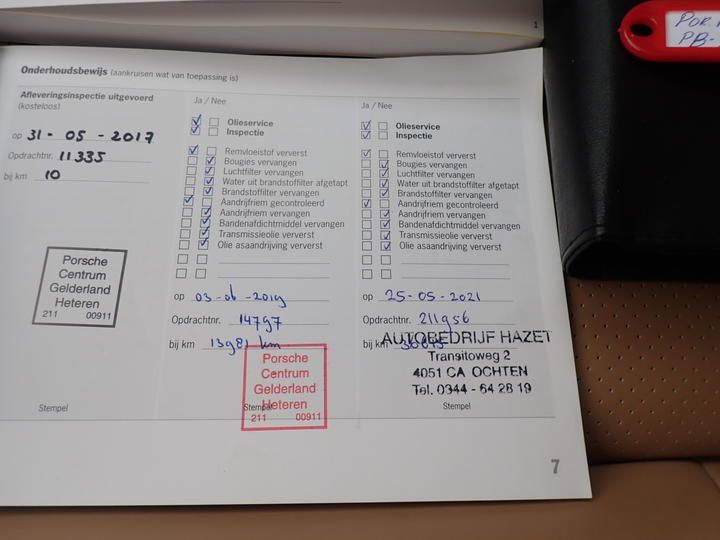 1
POR.
PB-
Onderhoudsbewijs (aankruisen wat van toepassing is)
Afleveringsinspectie uitgevoerd
(kosteloos)
op 31-05-2017
Opdrachtnr. 11335
bij km 10
Porsche
Centrum
Gelderland
Heteren
211 00911
Stempel
Ja / Nee
Olieservice
Inspectie
Remvloeistof ververst
Bougies vervangen
Luchtfilter vervangen
Water uit brandstoffilter afgetapt
Brandstoffilter vervangen
Aandrijfriem gecontroleerd
Aandrijfriem vervangen
Bandenafdichtmiddel vervangen
Transmissieolie ververst
Olie asaandrijving ververst
op 03-06-2019
Opdrachtnr. 14797
bij km 13981 km
Porsche
Centrum
Gelderland
Heteren
211 00911
Stempel
Ja / Nee
Olieservice
Inspectie
Remvloeistof ververst
Bougies vervangen
Luchtfilter vervangen
Water uit brandstoffilter afgetapt
Brandstoffilter vervangen
Aandrijfriem gecontroleerd
Aandrijfriem vervangen
Bandenafdichtmiddel vervangen
Transmissieolie ververst
Olie asaandrijving ververst
op 25-05-2021
Opdrachtnr. 211956
bij km
AUTOBEDRIJF HAZET
Transitoweg 2
4051 CA OCHTEN
Tel. 0344 - 64 28 19
Stempel
7